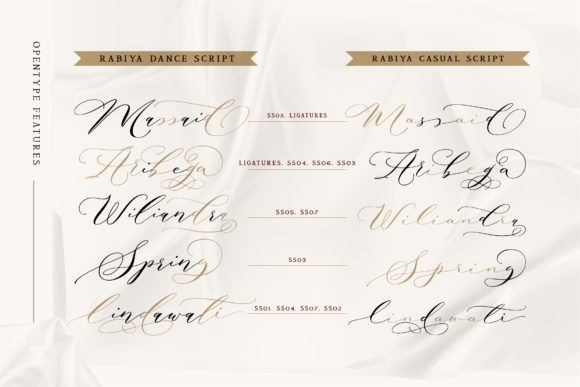 OPENTYPE FEATURES
RABIYA DANCE SCRIPT
RABIYA CASUAL SCRIPT
Massaid
SS03. LIGATURES
Massaid
Aribega
LIGATURES. SS04, SS06, SS03
Aribega
Wiliandra
SS05. SS07
Wiliandra
Spring
SS03
Spring
lindawati
SS01. SS04. SS07. SS02
lindawati